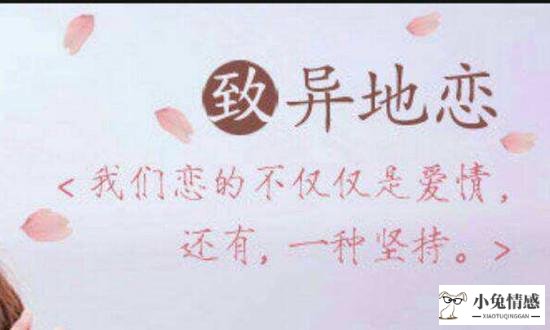 致异地恋
<我们恋的不仅仅是爱情,
还有,一种坚持。>
小兔情感
XIAOTUQINGGAN